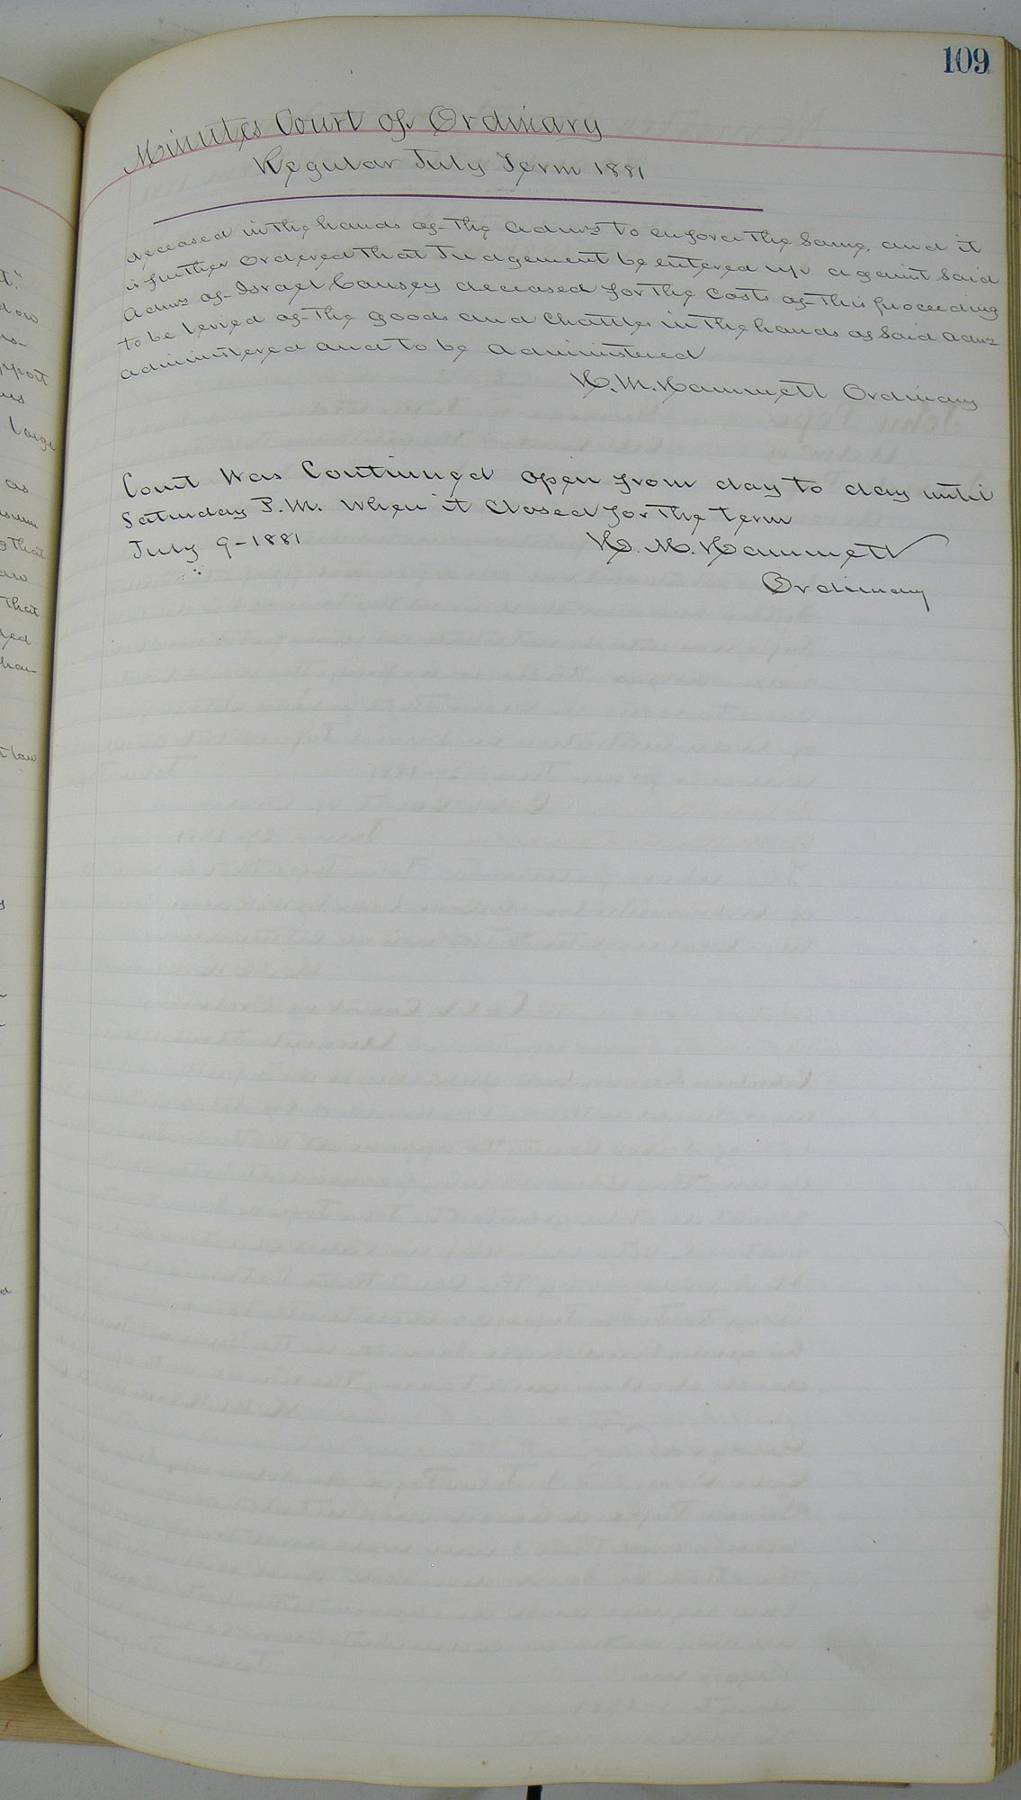 109
Minutes Court of Ordinary
Regular July Term 1881
deceased in the hands of the Admrs to enforce the same, and it
is further ordered that Judgement be entered up against said
Admrs of Israel Causey deceased for the Costs of this proceeding
to be levied of the goods and Chattles in the hands of said Admrs
administered and to be administered
H. M. Hammett Ordinary
Court Was Continued open from day to day until
Saturday P.M. When it Closed for the term
July 9-1881
H. M. Hammett
Ordinary